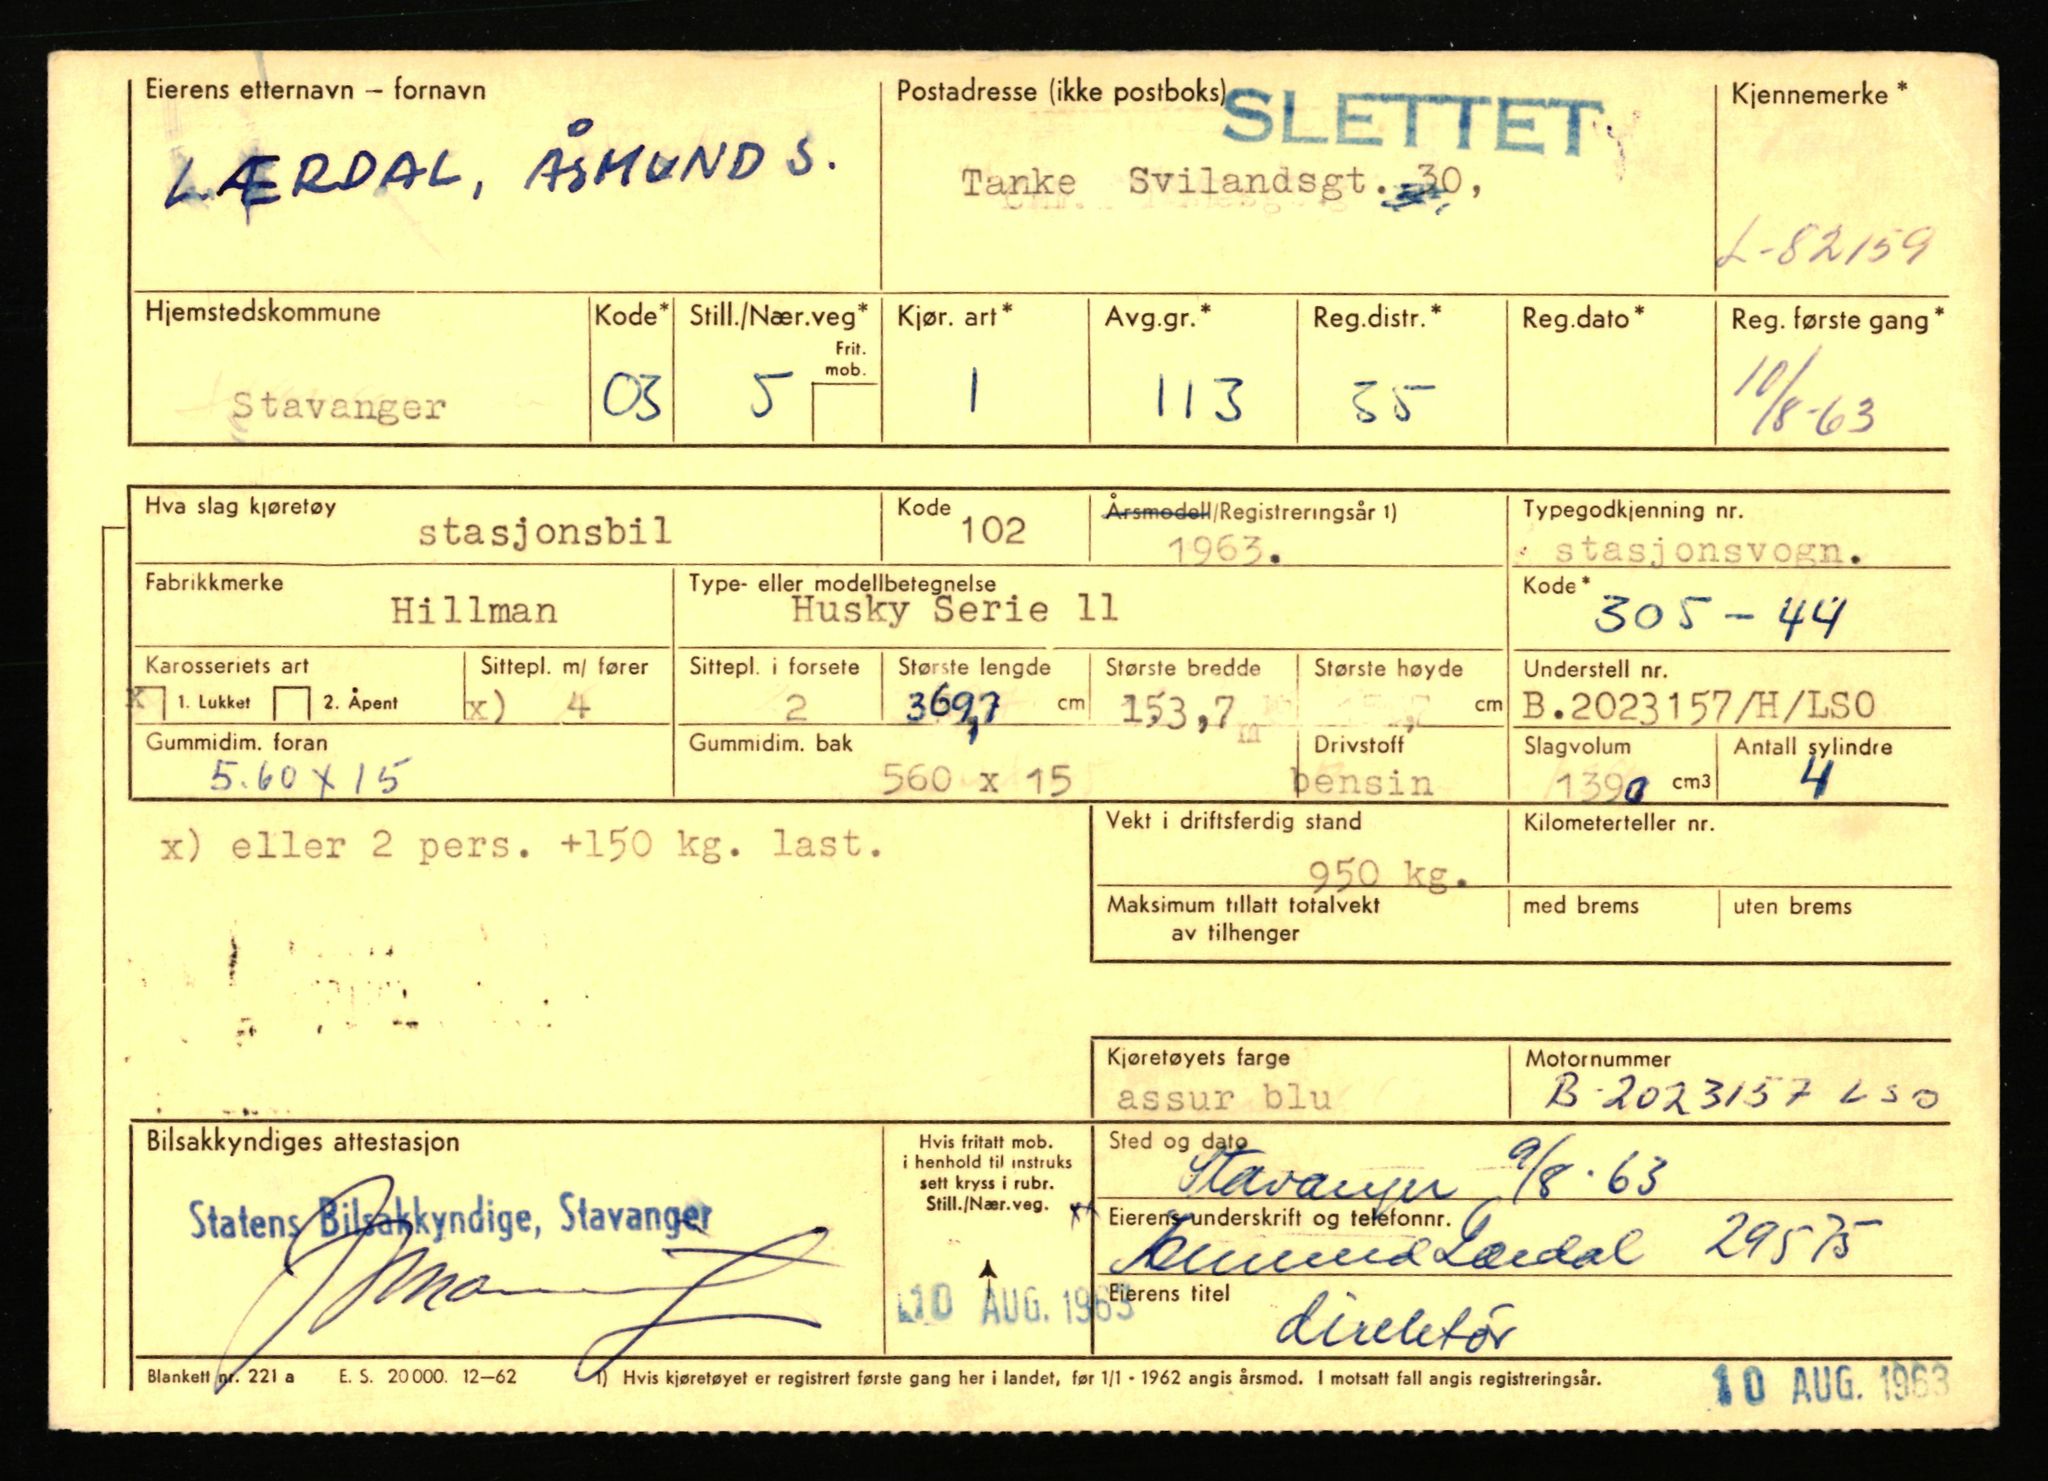 Eierens etternavn – fornavn
LÆRDAL, ÅSMUND S.
Postadresse (ikke postboks)
SLETTET
Tanke Svilandsgt. 30,
Kjennemerke *
L-82159
Hjemstedskommune
Stavanger
Kode*
03
Still./Nær.veg*
Frit. mob.
5
Kjør. art*
1
Avg.gr.*
113
Reg.distr.*
35
Reg.dato*
Reg. første gang*
10/8-63
Hva slag kjøretøy
stasjonsbil
Kode
102
Årsmodell/Registreringsår 1)
1963.
Typegodkjenning nr.
stasjonsvogn.
Fabrikkmerke
Hillman
Type- eller modellbetegnelse
Husky Serie ll
Kode*
305 - 44
Karosseriets art
x 1. Lukket 2. Åpent
Sittepl. m/ fører
x) 4
Sittepl. i forsete
2
Største lengde
369,7 cm
Største bredde
153,7
Største høyde
cm
Understell nr.
B.2023157/H/LSO
Gummidim. foran
5.60 x 15
Gummidim. bak
560 x 15
Drivstoff
bensin
Slagvolum
1390 cm3
Antall sylindre
4
x) eller 2 pers. +150 kg. last.
Vekt i driftsferdig stand
950 kg.
Kilometerteller nr.
Maksimum tillatt totalvekt
av tilhenger
med brems
uten brems
Kjøretøyets farge
assur blu
Motornummer
B-2023157 LSO
Bilsakkyndiges attestasjon
Statens Bilsakkyndige, Stavanger
Hvis fritatt mob.
i henhold til instruks
sett kryss i rubr.
Still./Nær.veg.
10 AUG. 1963
Sted og dato
Stavanger 9/8-63
Eierens underskrift og telefonnr.
Åsmund Lærdal 29575
Eierens titel
direktør
Blankett nr. 221 a E. S. 20 000. 12–62 1) Hvis kjøretøyet er registrert første gang her i landet, før 1/1 - 1962 angis årsmod. I motsatt fall angis registreringsår.
10 AUG. 1963